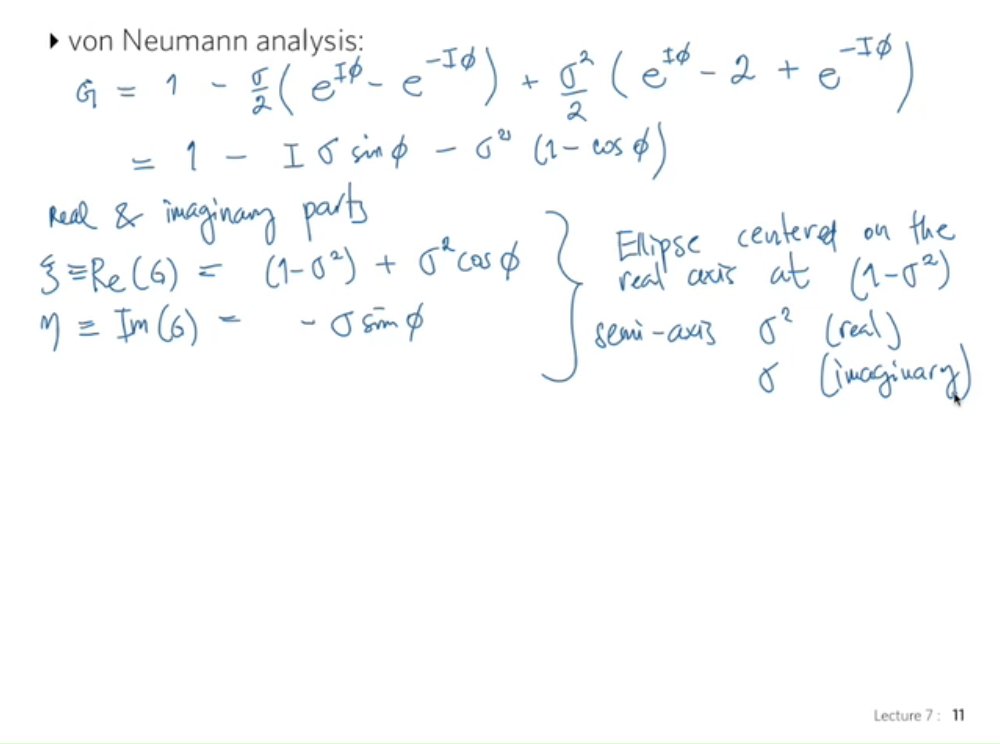 ▸ von Neumann analysis:
G = 1 - σ/2 ( e^{Iϕ} - e^{-Iϕ} ) + σ²/2 ( e^{Iϕ} - 2 + e^{-Iϕ} )
= 1 - I σ sin ϕ - σ² (1 - cos ϕ)
Real & imaginary parts
ξ ≡ Re(G) = (1-σ²) + σ² cos ϕ
η ≡ Im(G) = - σ sin ϕ
Ellipse centered on the
real axis at (1-σ²)
semi-axis σ² (real)
σ (imaginary)
Lecture 7 : 11